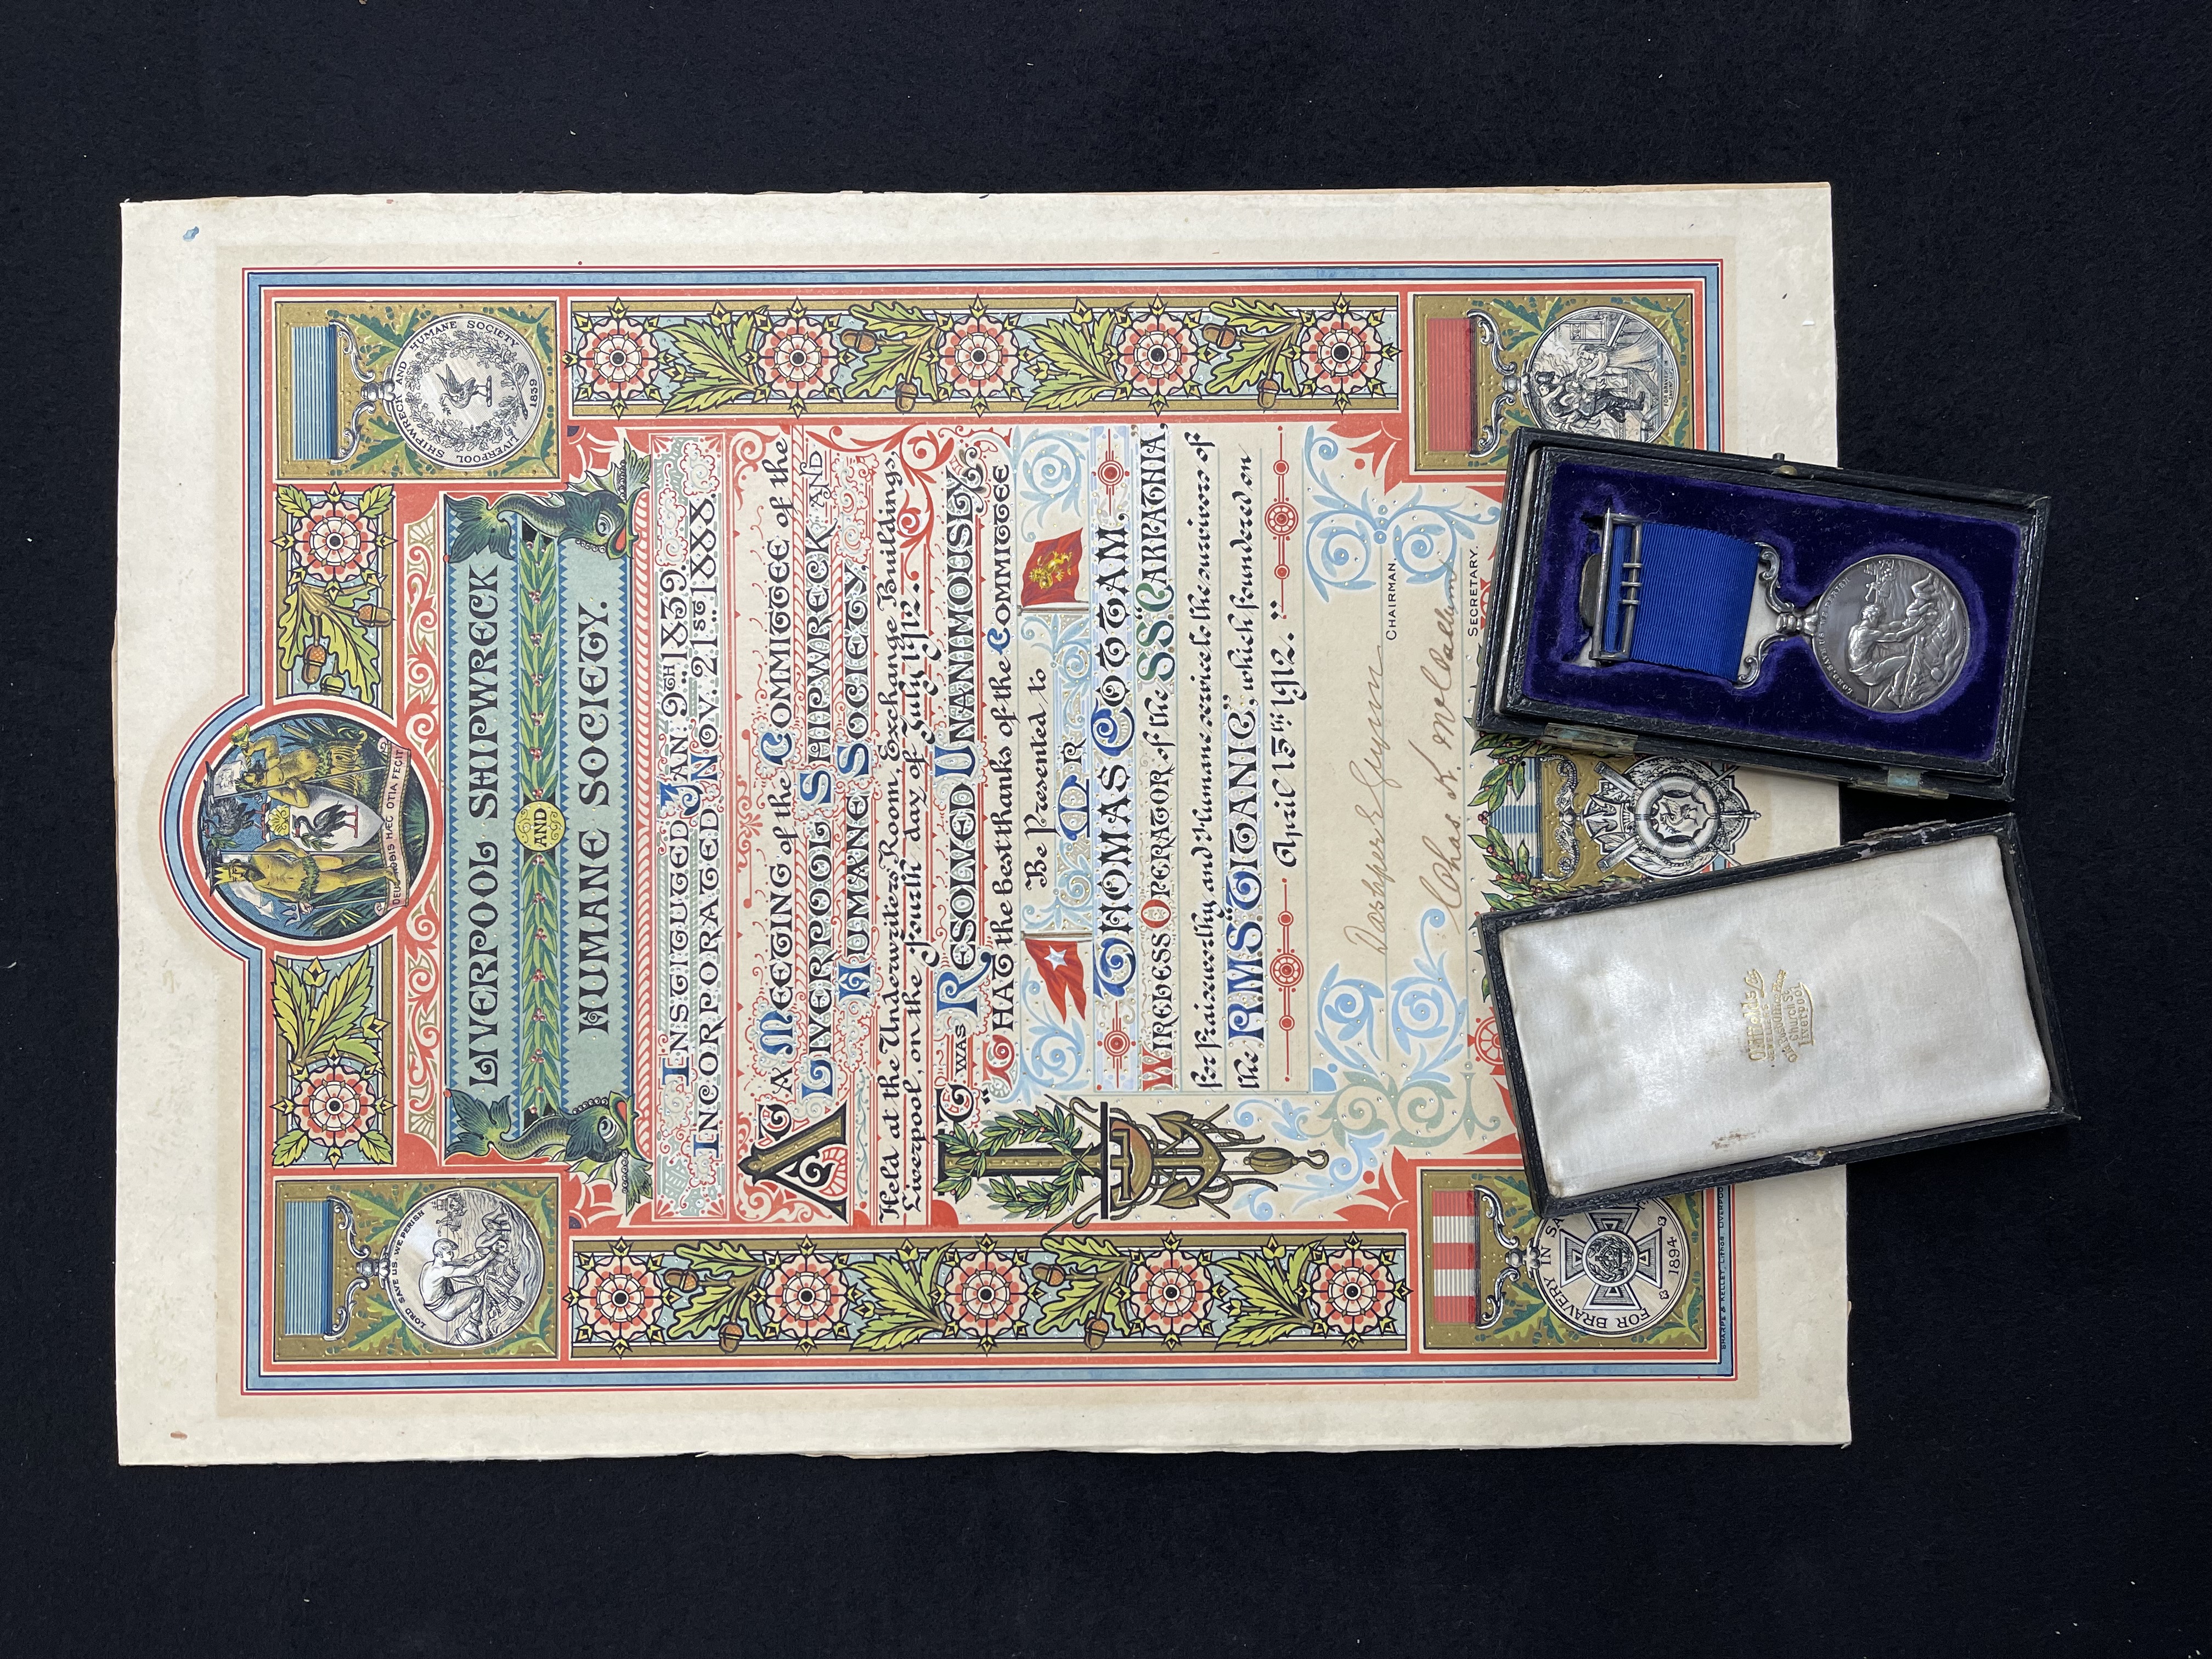 DEUS NOBIS HÆC OTIA FECIT
LORD SAVE US, WE PERISH
LIVERPOOL SHIPWRECK AND HUMANE SOCIETY
1839
LIVERPOOL SHIPWRECK
AND
HUMANE SOCIETY.
INSTITUTED JAN: 9TH 1839.
INCORPORATED NOV. 21ST 18XX.
AT A MEETING of the COMMITTEE of the
LIVERPOOL SHIPWRECK AND
HUMANE SOCIETY.
Held at the Underwriters' Room, Exchange Buildings,
Liverpool, on the Fourth day of July 1912.
IT WAS RESOLVED UNANIMOUSLY
"THAT the best thanks of the COMMITTEE
Be Presented to
MR
THOMAS COTTAM,
WIRELESS OPERATOR of the S.S. "CARPATHIA,"
for Praiseworthy and Humane service to the survivors of
the R.M.S. "TITANIC", which foundered on
April 15TH 1912."
CHAIRMAN.
Chas K.
SECRETARY.
FOR BRAVERY IN SA
1894
SHARPE & KELLET, LITHOS LIVERPOO
LORD SAVE US WE PERISH
JEWELLERS
Church St
Liverpool